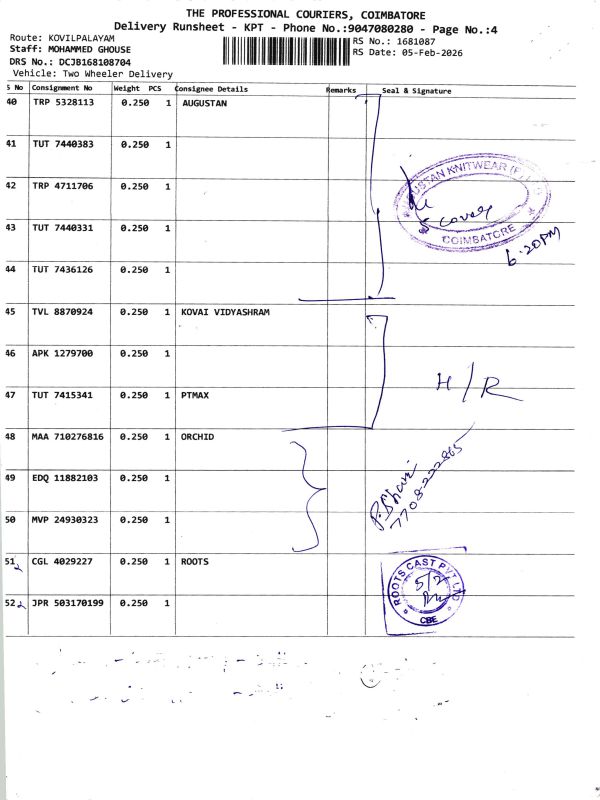 THE PROFESSIONAL COURIERS, COIMBATORE
Delivery Runsheet - KPT - Phone No.:9047080280 - Page No.:4
Route: KOVILPALAYAM
RS No.: 1681087
Staff: MOHAMMED GHOUSE
RS Date: 05-Feb-2026
DRS No.: DCJB168108704
Vehicle: Two Wheeler Delivery
S No Consignment No Weight PCS Consignee Details Remarks Seal & Signature
40 TRP 5328113 0.250 1 AUGUSTAN
41 TUT 7440383 0.250 1
42 TRP 4711706 0.250 1
43 TUT 7440331 0.250 1
44 TUT 7436126 0.250 1
KNITWEAR
COIMBATORE
6.20PM
45 TVL 8870924 0.250 1 KOVAI VIDYASHRAM
46 APK 1279700 0.250 1
47 TUT 7415341 0.250 1 PTMAX
H/R
48 MAA 710276816 0.250 1 ORCHID
49 EDQ 11882103 0.250 1
50 MVP 24930323 0.250 1
51 CGL 4029227 0.250 1 ROOTS
52 JPR 503170199 0.250 1
ROOTS CAST PVT LTD
5/2
CBE